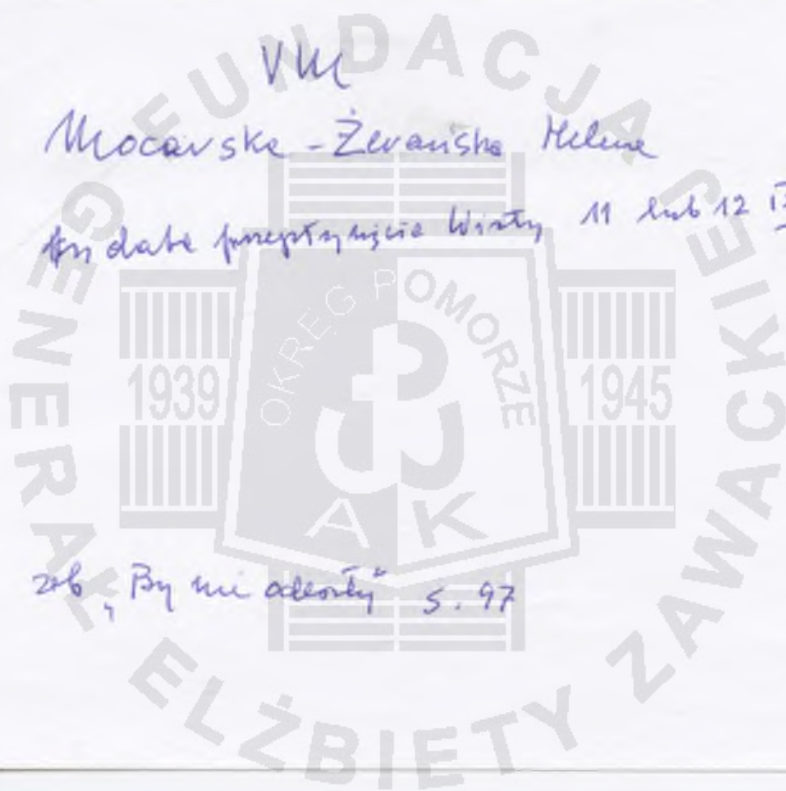 VM
Mocarska-Żerańska Helena
data przepłynięcia Wisły 11 lub 12 IX
zob „By nie odeszły” s. 97
FUNDACJA
GENERAŁ ELŻBIETY ZAWACKIEJ
OKRĘG POMORZE
1939
1945
AK